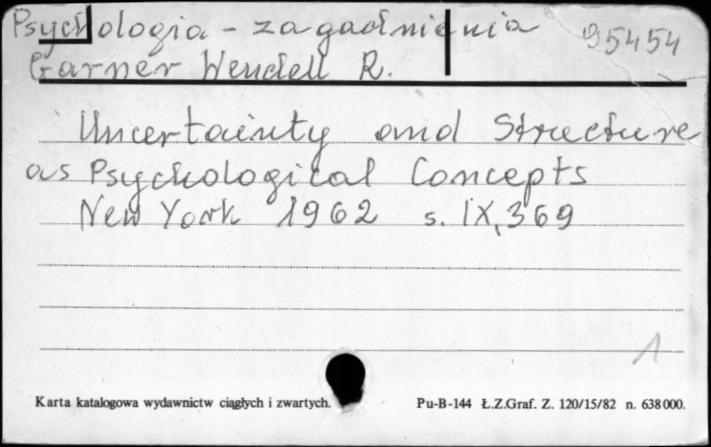 Psychologia - zagadnienia 95454
Garner Wendell R.
Uncertainty and Structure
as Psychological Concepts
New York 1962 s. IX, 369
1
Karta katalogowa wydawnictw ciągłych i zwartych. Pu-B-144 Ł.Z.Graf. Z. 120/15/82 n. 638000.